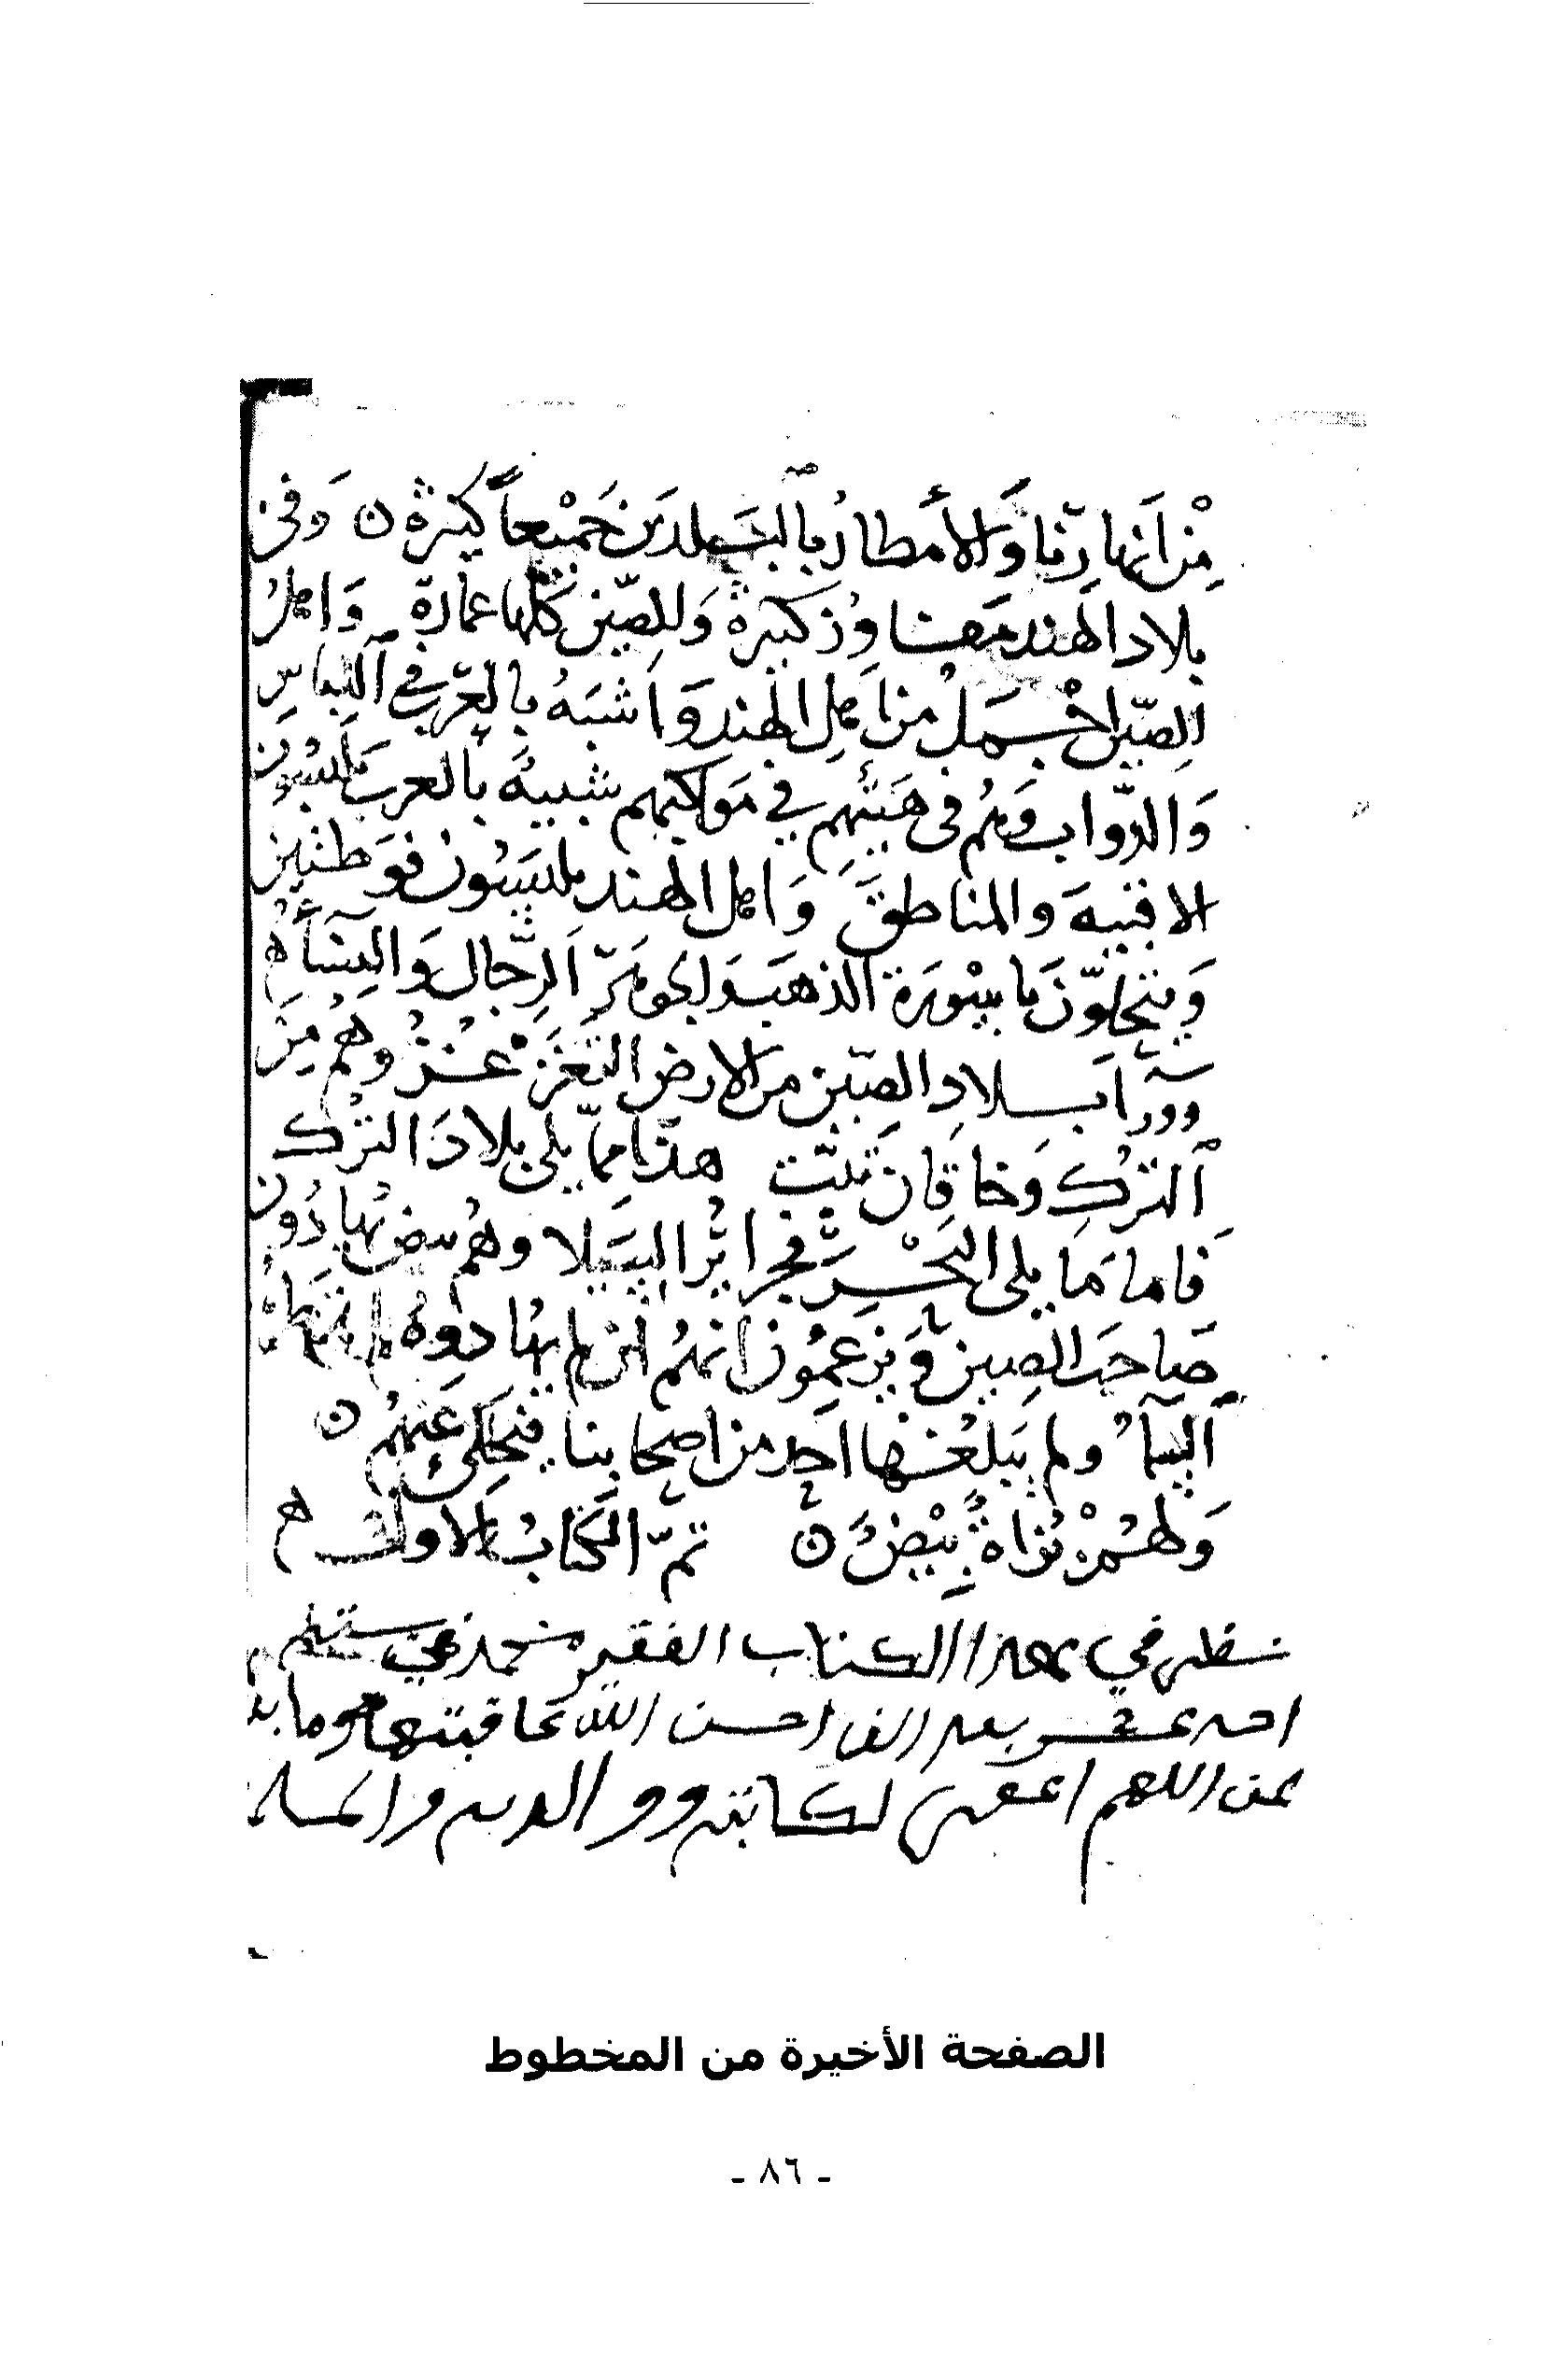 من انهارنا والأمطار بالبلدين جميعاً كثيرة ن وفى
بلاد الهند مفاوز كثيرة وللصّين كلّها عمارة واهل
الصّين اجمل من اهل الهند واشبه بالعرب في اللباس
والدّواب وهم فى هيئتهم في مواكبهم شبيه بالعرب يلبسون
الاقبية والمناطق واهل الهند يلبسون فوطتين
ويتحلّون باسورة الذهب والجوهر الرّجال والنسآء ه
وورآ بلاد الصّين من الارض التغزغز وهم من
الترك وخاقان تبّت هذا ممّا يلى بلاد الترك
فاما ما يلى البحر فجزائر السيلا وهم بيض يهادون
صاحب الصين ويزعمون انهم ان لم يهادوه لم تمطرهم
السمآء ولم يبلغها احد من اصحابنا فيحكى عنهم ن
ولهم بزاة بيض ن تمّ الكتاب الاول ه
نظر في هذا الكتاب الفقير محمد في سنة
احد عشر بعد الف احسن الله عاقبتها وما بعد
اللهم اغفر لكاتبه ووالديه والمسلـ
الصفحة الأخيرة من المخطوط
- ٨٦ -